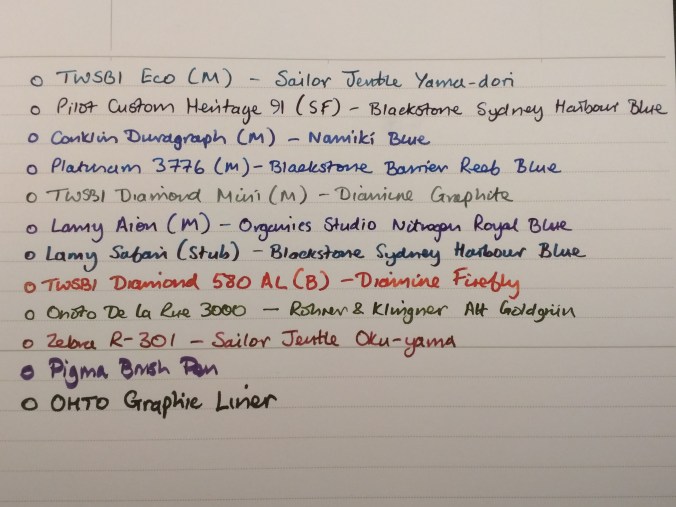 o TWSBI Eco (M) - Sailor Jentle Yama-dori
o Pilot Custom Heritage 91 (SF) - Blackstone Sydney Harbour Blue
o Conklin Duragraph (M) - Namiki Blue
o Platinum 3776 (M) - Blackstone Barrier Reef Blue
o TWSBI Diamond Mini (M) - Diamine Graphite
o Lamy Aion (M) - Organics Studio Nitrogen Royal Blue
o Lamy Safari (Stub) - Blackstone Sydney Harbour Blue
o TWSBI Diamond 580 AL (B) - Diamine Firefly
o Onoto De la Rue 3000 - Rohrer & Klingner Alt Goldgrün
o Zebra R-301 - Sailor Jentle Oku-yama
o Pigma Brush Pen
o OHTO Graphic Liner